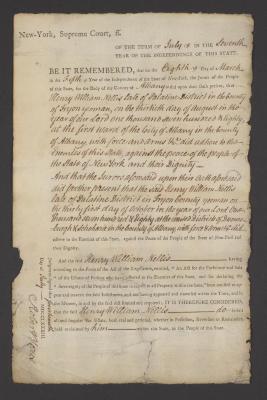 New-York, Supreme Court, ss.
OF THE TERM OF July IN THE Seventh
YEAR OF THE INDEPENDENCE OF THIS STATE.
BE IT REMEMBERED, that on the Eighth Day of March
in the Fifth Year of the Independence of the State of New-York, the Jurors of the People
of this State, for the Body of the County of Albany did upon their Oath present, that
Henry William Nellis late of Palatine District in the County
of Tryon yeoman, on the thirtieth day of August in the
year of our Lord one thousand seven hundred & eighty
at the first ward of the City of Albany in the County
of Albany, with force and arms &c. did adhere to the
enemies of this State, against the peace of the people of
the State of New York and their Dignity—
And that the Jurors aforesaid upon their Oath aforesaid
did further present that the said Henry William Nellis
late of Palatine District in Tryon County yeoman on
the thirty first day of October in the year of our Lord One
thousand seven hundred & Eighty at the united Districts of
& Schoharie in the County of Albany with force & Arms &c. did
adhere to the Enemies of this State, against the Peace of the People of the State of New-York and
their Dignity.
And the said Henry William Nellis having
according to the Form of the Act of the Legislature, entitled, "An Act for the Forfeiture and Sale
of the Estates of Persons who have adhered to the Enemies of this State, and for declaring the
Sovereignty of the People of this State in respect to all Property within the same,"
IT IS THEREFORE CONSIDERED,
that the said Henry William Nellis do
forfeit all and singular the Estate, both real and personal, whether in Possession, Reversion or Remainder,
held or claimed by him within this State, to the People of this State.